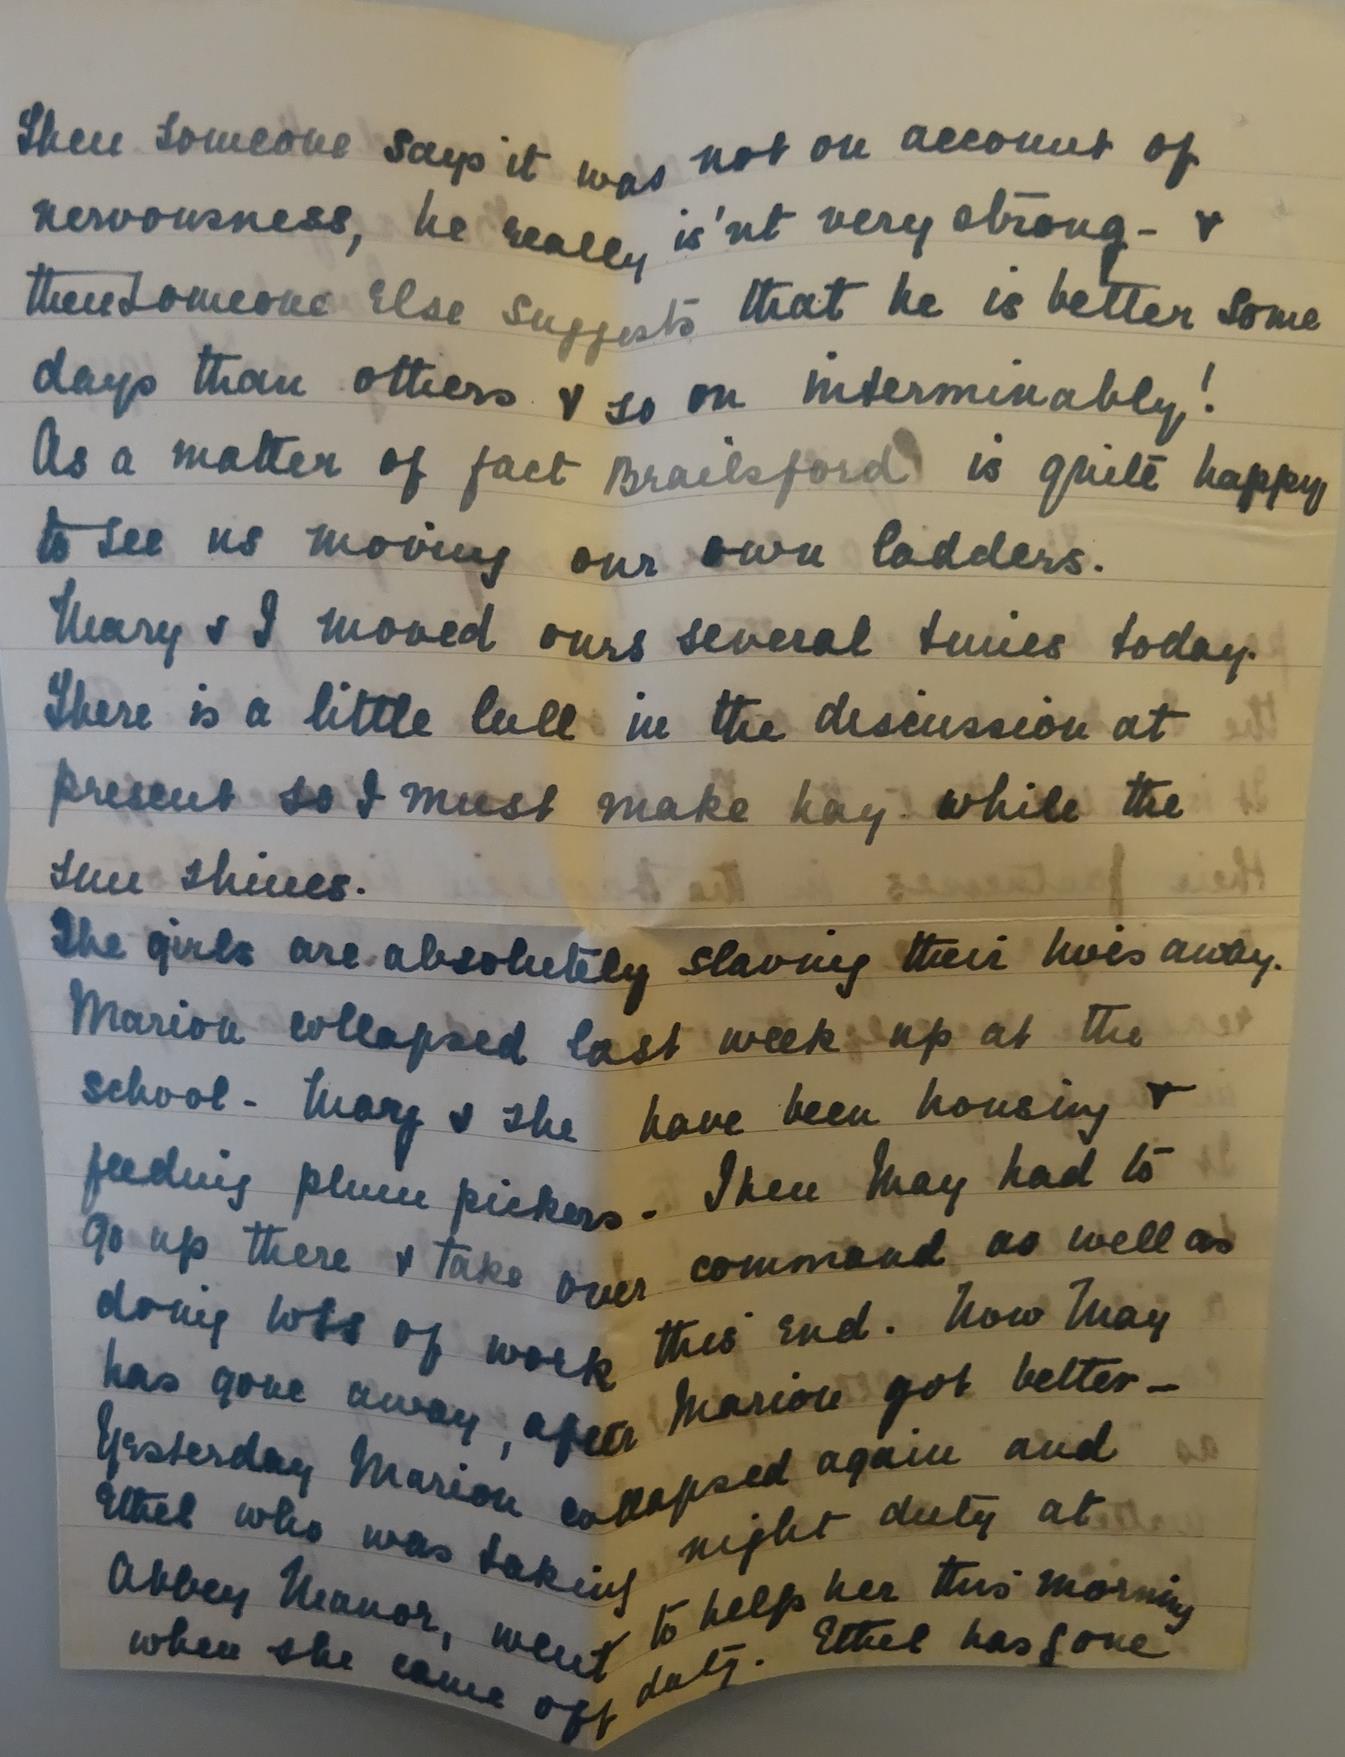 Then someone says it was not on account of
nervousness, he really is'nt very strong - &
then someone Else suggests that he is better some
days than others & so on interminably!
As a matter of fact Brailsford is quite happy
to see us moving our own ladders.
Mary & I moved ours several times today.
There is a little lull in the discussion at
present so I must make hay while the
sun shines.
The girls are absolutely slaving their lives away.
Marion collapsed last week up at the
school - Mary & she have been housing &
feeding plum pickers - Then May had to
go up there & take over command as well as
doing lots of work this End. Now May
has gone away, after Marion got better -
Yesterday Marion collapsed again and
Ethel who was taking night duty at
Abbey Manor, went to help her this morning
when she came off duty. Ethel has gone